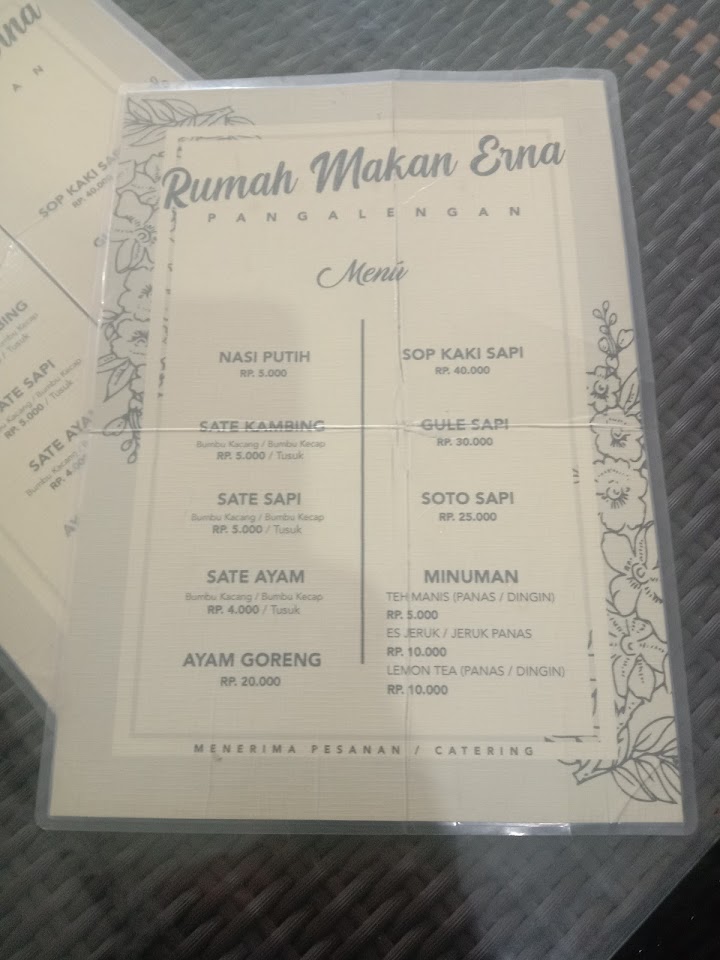 Rumah Makan Erna
PANGALENGAN
Menú
NASI PUTIH
RP. 5.000
SATE KAMBING
Bumbu Kacang / Bumbu Kecap
RP. 5.000 / Tusuk
SATE SAPI
Bumbu Kacang / Bumbu Kecap
RP. 5.000 / Tusuk
SATE AYAM
Bumbu Kacang / Bumbu Kecap
RP. 4.000 / Tusuk
AYAM GORENG
RP. 20.000
SOP KAKI SAPI
RP. 40.000
GULE SAPI
RP. 30.000
SOTO SAPI
RP. 25.000
MINUMAN
TEH MANIS (PANAS / DINGIN)
RP. 5.000
ES JERUK / JERUK PANAS
RP. 10.000
LEMON TEA (PANAS / DINGIN)
RP. 10.000
MENERIMA PESANAN / CATERING
SOP KAKI SA
RP. 40.000
SATE SAPI
Bumbu Kacang / Bumbu Kecap
RP. 5.000 / Tusuk
SATE AYA